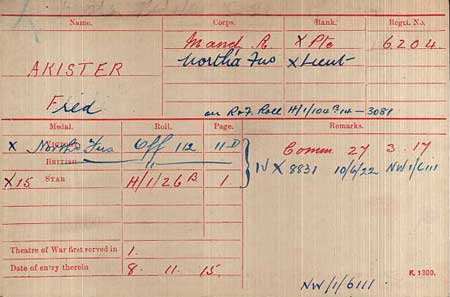 Name. Corps. Rank. Regtl. No.
Manch R X Pte 6204
AKISTER North'd Fus X Lieut
Fred
on R & F Roll H/1/104 B14 - 3081
Medal. Roll. Page. Remarks.
X North'd Fus Off 112 11D Comm. 27 3 17
BRITISH IV X 8831 10/6/22 NW/1/6111
X 15 STAR H/1/26B 1.
Theatre of War first served in 1.
Date of entry therein 8. 11. 15.
K. 1380.
NW/1/6111.